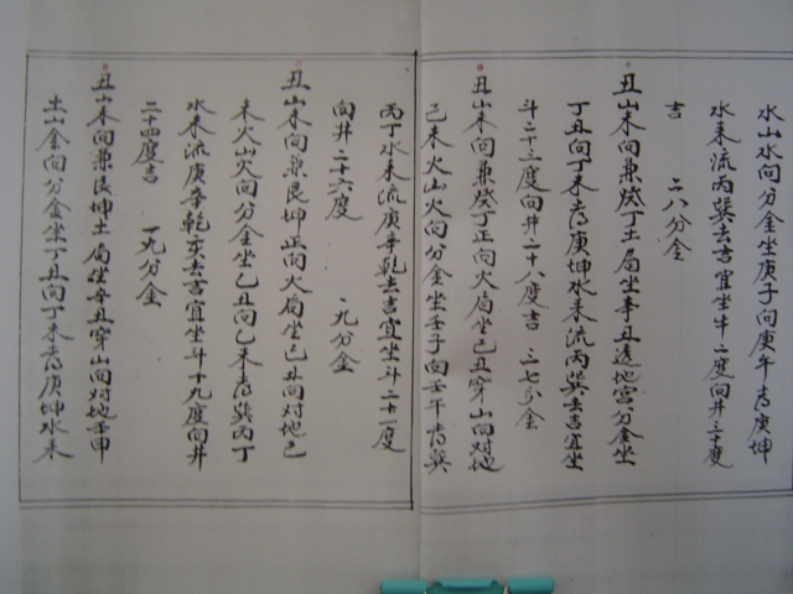 水山水向分金坐庚子向庚午青庚坤
水來流丙巽去吉宜坐牛二度向井三十度
吉　二八分金
丑山未向兼癸丁土局坐辛丑透地宮分金坐
丁丑向丁未青庚坤水來流丙巽去吉宜坐
斗二十三度向井二十八度吉　三七分金
丑山未向兼癸丁正向火局坐己丑穿山向对地
己未火山火向分金坐壬子向壬午青巽
丙丁水來流庚辛乾去吉宜坐斗二十一度
向井二十六度　九分金
丑山未向兼艮坤正向火局坐己丑向对地己
未火山火向分金坐乙丑向乙未青巽丙丁
水來流庚辛乾亥去吉宜坐斗十九度向井
二十四度吉　一九分金
丑山未向兼艮坤土局坐辛丑穿山向对地壬申
土山金向分金坐丁丑向丁未青庚坤水來